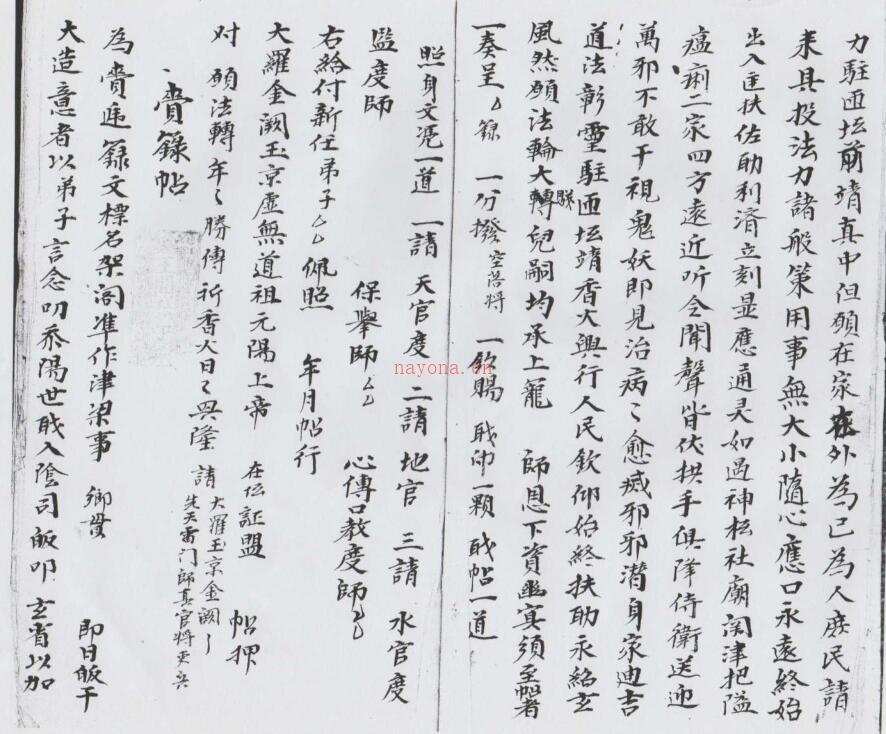 力駐匝坛前靖真中但願在家在外為已為人庶民請
来具投法力諸般策用事無大小隨心應口永遠終始
出入匡扶佐助利濟立刻显應通灵如過神松社廟関津把隘
瘟瘌二家四方遠近听令聞聲皆伏拱手俱降侍衛送迎
萬邪不敢干視鬼妖即見治病〻愈㓕邪邪潜身家迪吉
道法彰靈駐匝坛靖香火興行人民欽仰始終扶助永紹玄
風然願法輪大轉兒嗣均承上寵 師恩下資幽冥須至帖者
一奏呈〻錄 一分撥 一欽賜 戝印一顆 戝帖一道
照身文凭一道 一請 天官度 二請 地官 三請 水官度
監度師 保舉師〻 心傳口教度師〻
右給付新任弟子〻佩照 年月帖行
大羅金阙玉京虛無道祖元陽上帝 在位証盟 帖押
对 願法轉年〻勝傳祈香火日〻興隆 請 大羅玉京金阙
先天雷门師真官將
賫籙帖
為賫進籙文標名架阁準作津梁事 即日皈干
大造意者以弟子言念叨忝陽世戝入陰司皈叩 玄省以加
nayona.cn